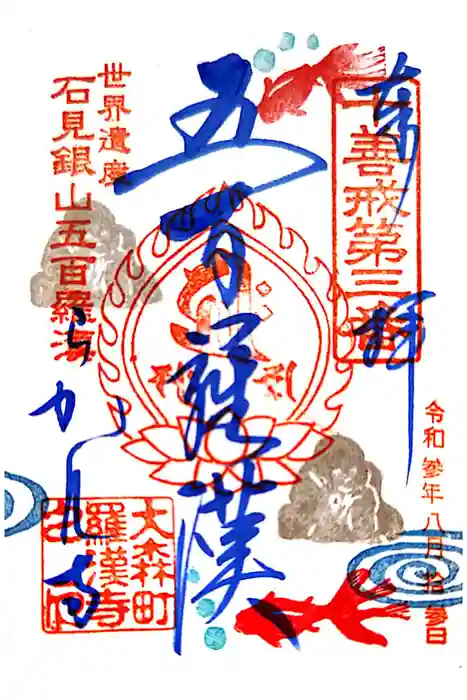 奉拝
十善戒第三番
令和参年八月拾参日
五百羅漢
世界遺産
石見銀山五百羅漢
らかん寺
大森町
羅漢寺